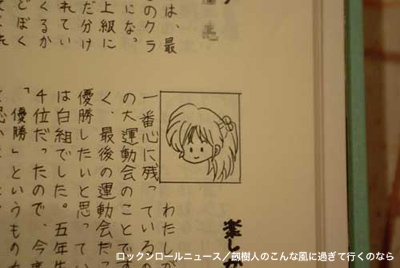 は、最
このクラ
にな。
上級に
だ分け
れてい
くるか
どぼく
楽しか
わたしが
一番心に残っているの
の大運動会のことです
く、最後の運動会だ
優勝したいと思ってい
は白組でした。五年生
4位だったので、今
「優勝」というもの
ロックンロールニュース／劔樹人のこんな風に過ぎて行くのなら